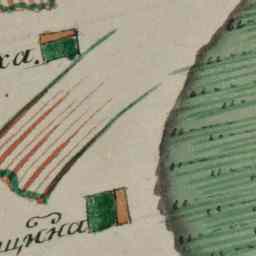 ха.
щина